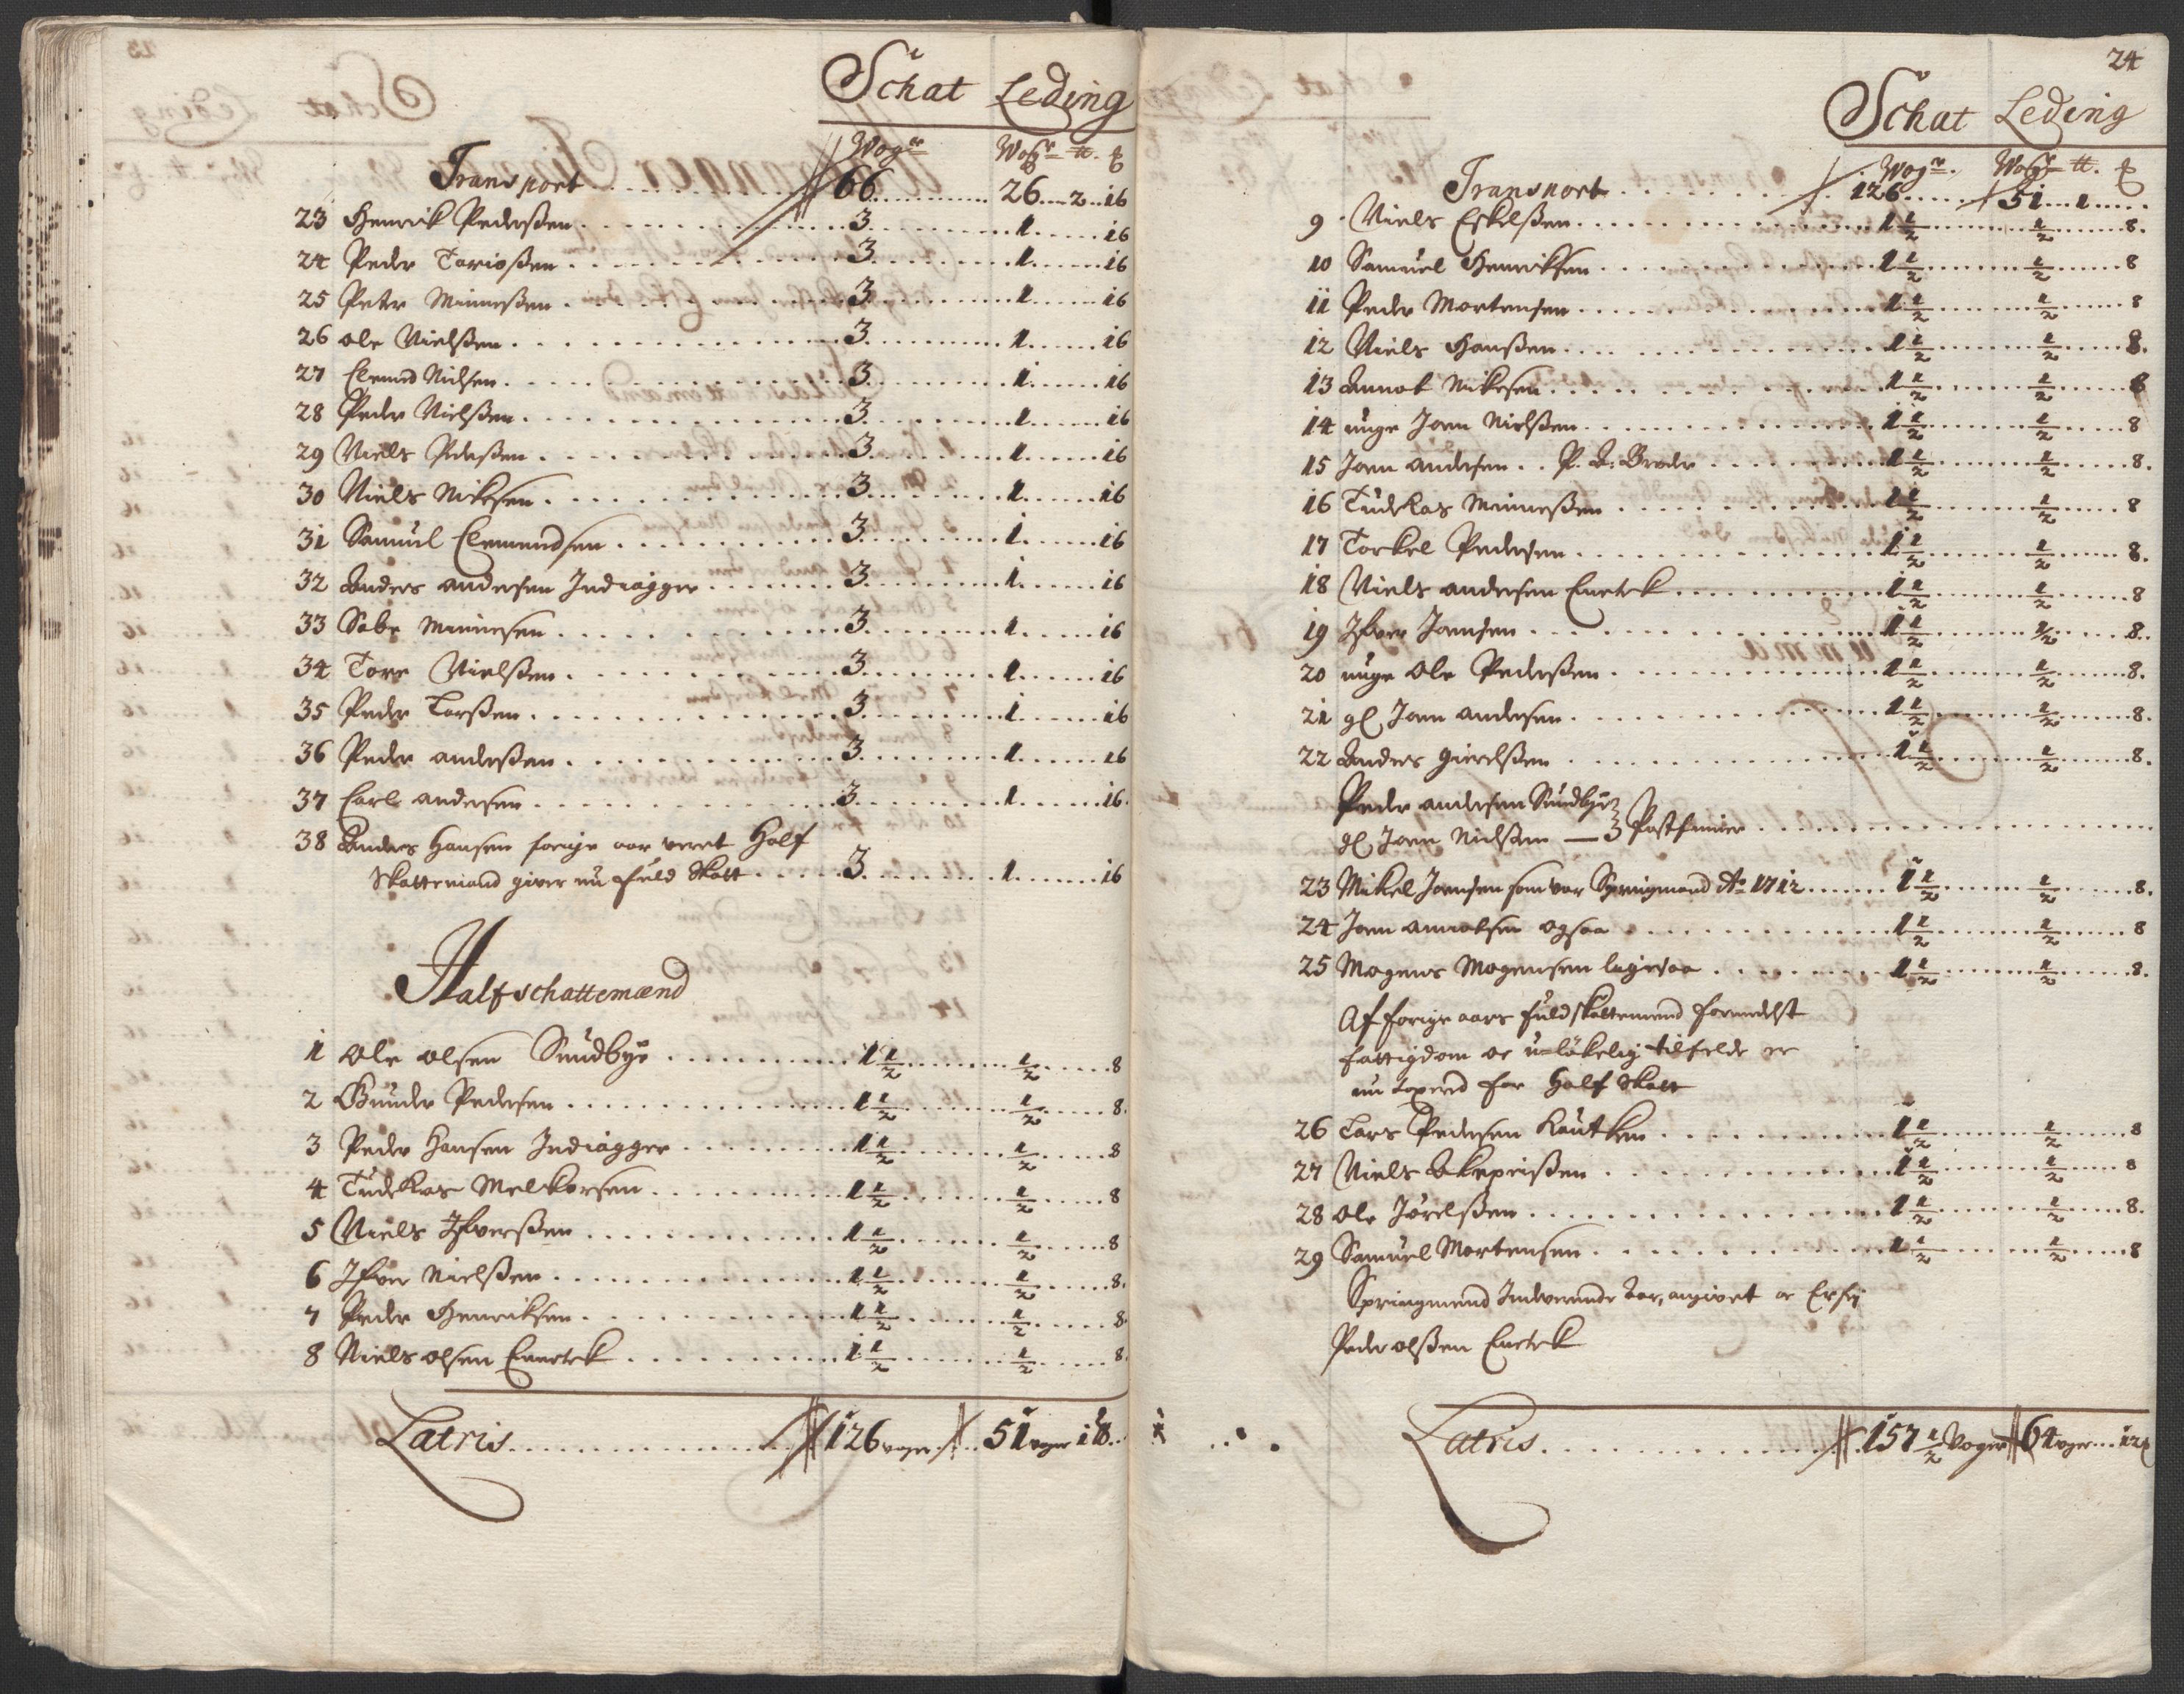 Schat Leding
Wogr Wogr ℔. ß
Transport 66 26 2 16
23 Henrik Pedersßen 3 1 16
24 Peder Toriosßen 3 1 16
25 Peter Minnesßen 3 1 16
26 Ole Nielsßen 3 1 16
27 Clemed Nielsen 3 1 16
28 Peder Nielsßen 3 1 16
29 Niels Pedersßen 3 1 16
30 Niels Nikesen 3 1 16
31 Samuel Clemendsen 3 1 16
32 Anders Andersen Indiagger 3 1 16
33 Sabe Minnesen 3 1 16
34 Tore Nielsßen 3 1 16
35 Peder Larsßen 3 1 16
36 Peder Andersßen 3 1 16
37 Carl Andersen 3 1 16
38 Anders Hansen forige aar veret Half
Skattemand giver nu fuld Skatt 3 1 16
Halfschattemænd
1 Ole Olsen Sundbye 1 1/2 1/2 8
2 Gunder Pedersen 1 1/2 1/2 8
3 Peder Hansen Indiagger 1 1/2 1/2 8
4 Tudekas Melkersen 1 1/2 1/2 8
5 Niels Ifversßen 1 1/2 1/2 8
6 Ifver Nielsßen 1 1/2 1/2 8
7 Peder Henriksen 1 1/2 1/2 8
8 Niels Olsen Enerek 1 1/2 1/2 8
Latris 126 voger 51 voger 1 ℔
24
Schat Leding
Wogr. Wogr ℔. ß
Transport 126 51 1
9 Niels Eskelsßen 1 1/2 1/2 8
10 Samuel Henriksen 1 1/2 1/2 8
11 Peder Mortensen 1 1/2 1/2 8
12 Niels Hansßen 1 1/2 1/2 8
13 Annot Nikesen 1 1/2 1/2 8
14 unge Joen Nielsßen 1 1/2 1/2 8
15 Joen Andersen P. A. Broder 1 1/2 1/2 8
16 Tudekas Minnesßen 1 1/2 1/2 8
17 Torkel Pedersen 1 1/2 1/2 8
18 Niels Andersen Enerek 1 1/2 1/2 8
19 Ifver Joensen 1 1/2 1/2 8
20 unge Ole Pedersßen 1 1/2 1/2 8
21 gl Joen Andersen 1 1/2 1/2 8
22 Anders Giørelsßen 1 1/2 1/2 8
Peder Andersen Sundbye
gl Joen Nielsßen Postfinner
23 Mikel Joensen som var Springmand Ao 1712 1 1/2 1/2 8
24 Joen Annotsen ogsaa 1 1/2 1/2 8
25 Mogens Mogensen ligesaa 1 1/2 1/2 8
Af forige aars fuldskattemend formedelst
fattigdom oc u-lökelig tilfelde er
nu taxered for Half Skatt
26 Lars Pedersen Kautken 1 1/2 1/2 8
27 Niels Akeprisßen 1 1/2 1/2 8
28 Ole Jörelsßen 1 1/2 1/2 8
29 Samuel Mortensen 1 1/2 1/2 8
Springmend Indeverende Aar, angivet
Peder Olsßen Enerek
Latris 157 1/2 Voger 64 voger 12 ß